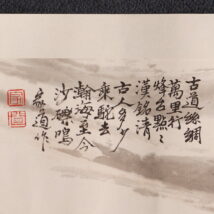 古道絲綢
萬里行
烽台點々
漢銘清
古人多少
乘駝去
瀚海至今
沙鳴
道作